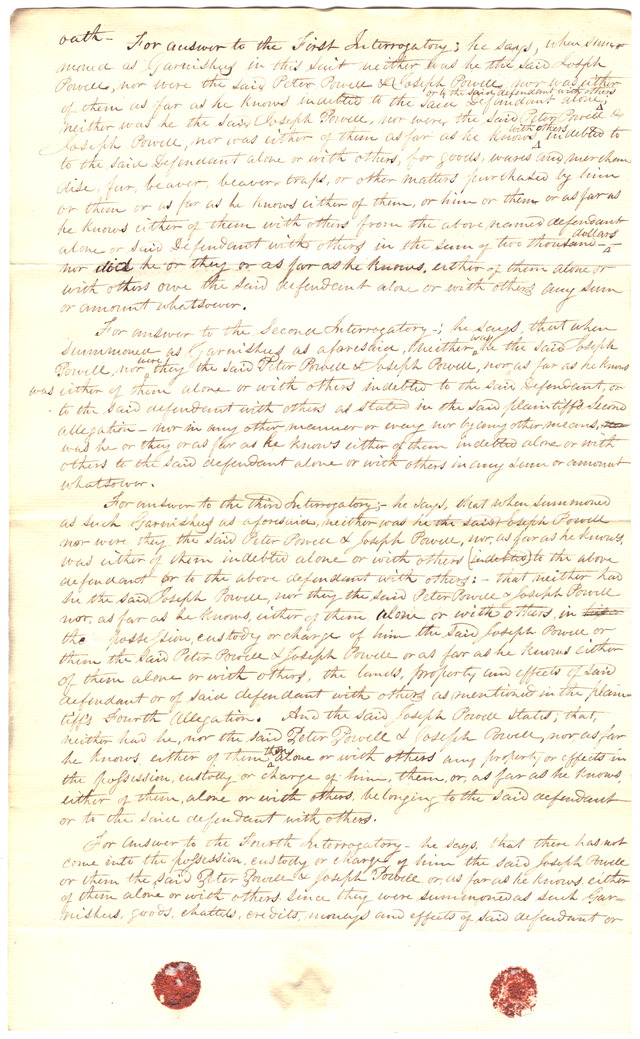 oath – For answer to the First Interrogatory; he says, when sum-
moned as Garnishees in this suit neither was he the said Joseph
Powell, nor were the said Peter Powell & Joseph Powell, nor was either
or to the said defendant with others
of them as far as he knows indebted to the said Defendant alone,
neither was he the said Joseph Powell, nor were the said Peter Powell &
with others
Joseph Powell, nor was either of them as far as he knows indebted to
to the said Defendant alone or with others, for goods, wares and merchan
dise, fur, beaver, beaver traps, or other matters purchased by him
or them or as far as he knows either of them, or him or them or as far as
he knows either of them with others from the above named defendant
alone or said Defendant with others in the sum of two thousand –
dollars
nor did he or they or as far as he knows, either of them alone or
with others owe the said defendant alone or with others any sum
or amount whatsoever.
For answer to the Second Interrogatory –; he says, that when
summoned as Garnishees as aforesaid, neither was he the said Joseph
Powell, nor were they the said Peter Powell & Joseph Powell, nor, as far as he knows
was either of them alone or with others indebted to the said Defendant, or
to the said defendant with others as stated in the said plaintiff's Second
allegation – nor in any other manner or way nor by any other means,
was he or they or as far as he knows either of them indebted alone or with
others to the said defendant alone or with others in any sum or amount
whatsoever.
For answer to the third Interrogatory; – he says, that when summoned
as such Garnishees as aforesaid, neither was he the said Joseph Powell
nor were they the said Peter Powell & Joseph Powell, nor, as far as he knows,
was either of them indebted alone or with others (indebted) to the above
defendant or to the above defendant with others: – that neither had
he the said Joseph Powell, nor they the said Peter Powell & Joseph Powell
nor, as far as he knows, either of them alone or with others in
the possession, custody or charge of him the said Joseph Powell or
them the said Peter Powell & Joseph Powell or as far as he knows either
of them alone or with others, the lands, property and effects of said
defendant or of said defendant with others as mentioned in the plain-
tiff's Fourth Allegation. And the said Joseph Powell states, that,
neither had he, nor the said Peter Powell & Joseph Powell, nor as far
he knows, either of them then alone or with others any property or effects in
the possession, custody or charge of him, them, or, as far as he knows,
either of them, alone or with others, belonging to the said defendant
or to the said defendant with others.
For answer to the Fourth Interrogatory – he says, that there has not
come into the possession, custody or charge of him the said Joseph Powell
or them the said Peter Powell & Joseph Powell or, as far as he knows, either
of them alone or with others, since they were summoned as such Gar-
nishees, goods, chattels, credits, moneys and effects of said defendant or